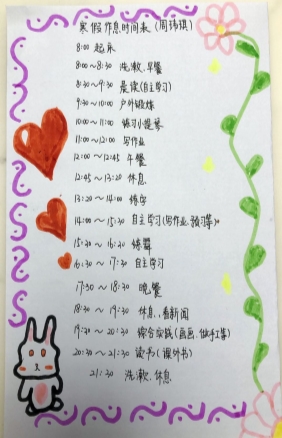 寒假作息时间表（周琦琪）
8:00 起床
8:00～8:30 洗漱、早餐
8:30～9:30 晨读(自主学习)
9:30～10:00 户外锻炼
10:00～11:00 练习小提琴
11:00～12:00 写作业
12:00～12:45 午餐
12:45～13:20 休息
13:20～14:00 练字
14:00～15:30 自主学习(写作业、预习等)。
15:30～16:30 练舞
16:30～17:30 自主学习
17:30～18:30 晚餐
18:30～19:30 休息、看新闻
19:30～20:30 综合实践(画画、做手工等)
20:30～21:30 读书(课外书)
21:30 洗漱、休息